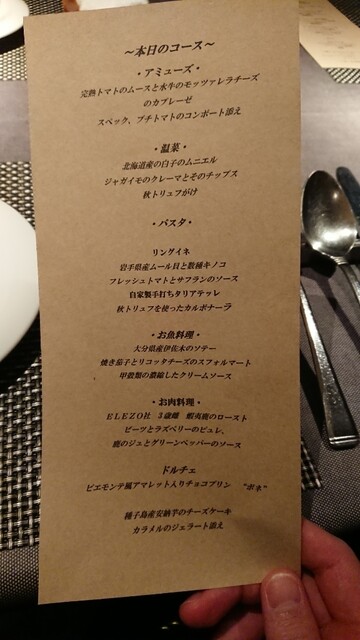 ～本日のコース～
・アミューズ・
完熟トマトのムースと水牛のモッツァレラチーズ
のカプレーゼ
スペック、プチトマトのコンポート添え
・温菜・
北海道産の白子のムニエル
ジャガイモのクレーマとそのチップス
秋トリュフがけ
・パスタ・
リングイネ
岩手県産ムール貝と数種キノコ
フレッシュトマトとサフランのソース
自家製手打ちタリアテッレ
秋トリュフを使ったカルボナーラ
・お魚料理・
大分県産伊佐木のソテー
焼き茄子とリコッタチーズのスフォルマート
甲殻類の濃縮したクリームソース
・お肉料理・
ELEZO社 3歳雌 蝦夷鹿のロースト
ビーツとラズベリーのピュレ、
鹿のジュとグリーンペッパーのソース
ドルチェ
ピエモンテ風アマレット入りチョコプリン "ボネ"
種子島産安納芋のチーズケーキ
カラメルのジェラート添え